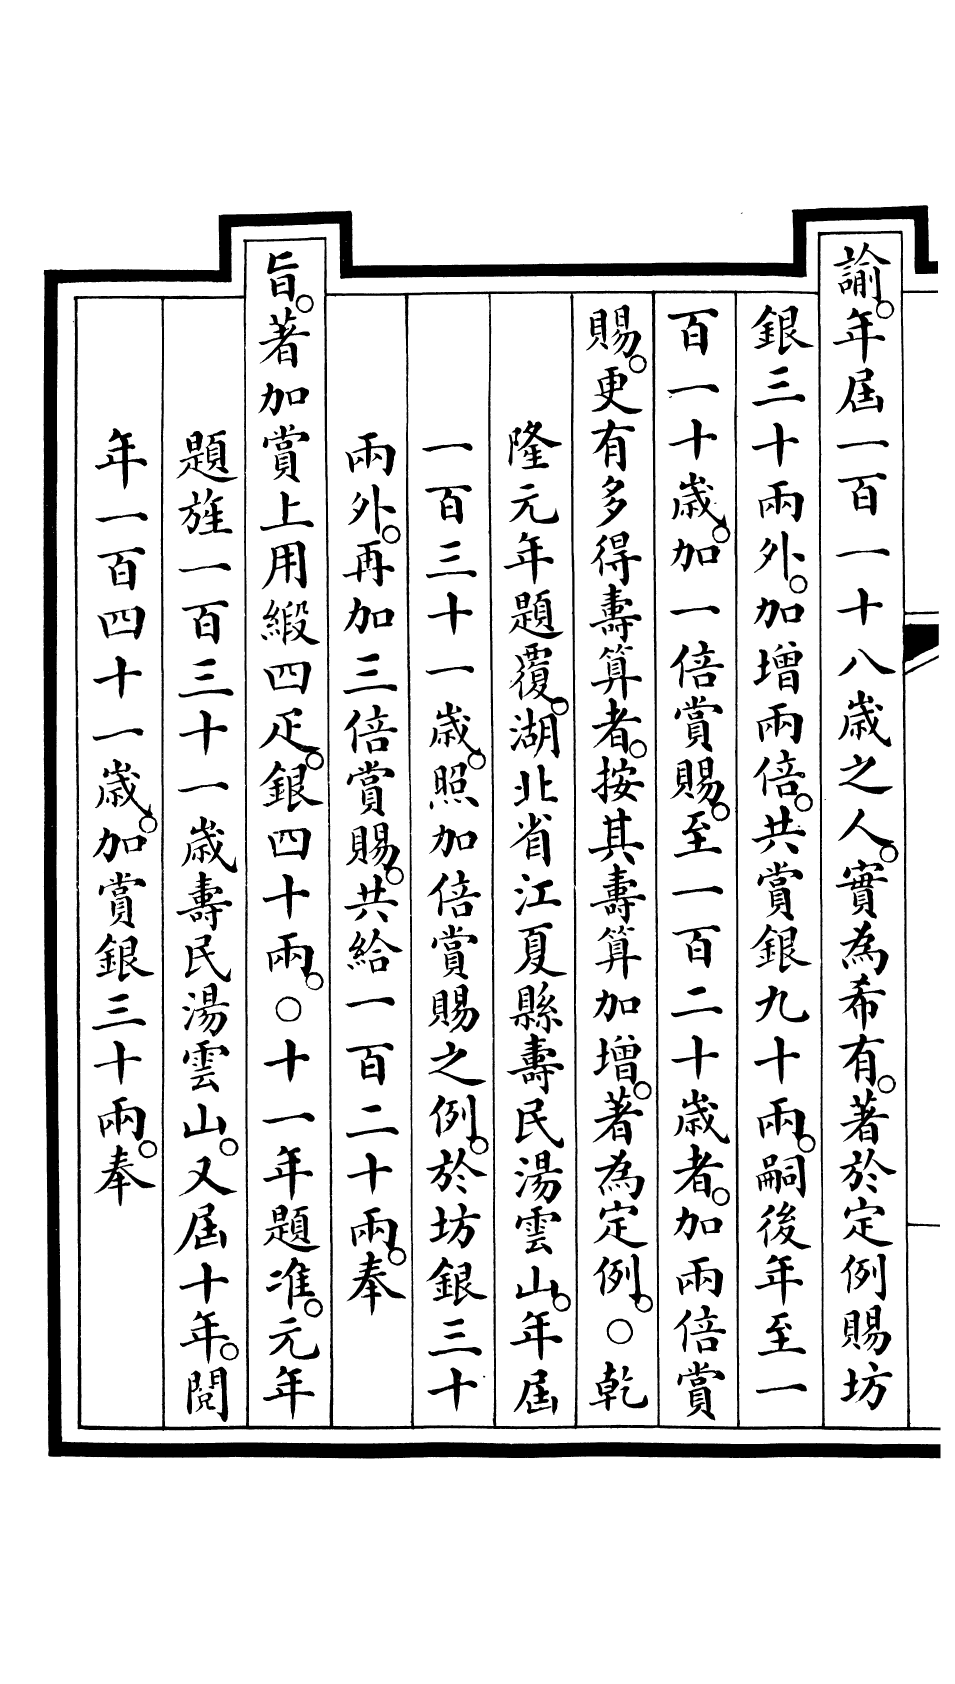 諭。年屆一百一十八歲之人。實為希有。著於定例賜坊
銀三十兩外。加增兩倍。共賞銀九十兩。嗣後年至一
百一十歲。加一倍賞賜。至一百二十歲者。加兩倍賞
賜。更有多得壽算者。按其壽算加增。著為定例。○乾
隆元年題覆。湖北省江夏縣壽民湯雲山。年屆
一百三十一歲。照加倍賞賜之例。於坊銀三十
兩外。再加三倍賞賜。共給一百二十兩。奉
旨。著加賞上用緞四疋。銀四十兩。○十一年題准。元年
題旌一百三十一歲壽民湯雲山。又屆十年。閱
年一百四十一歲。加賞銀三十兩。奉